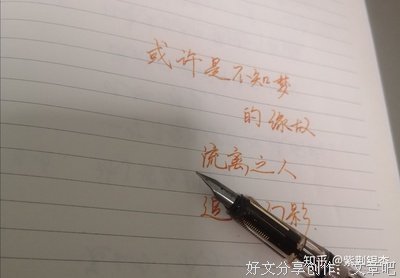 或许是不知梦
的缘故
流离之人
追 幻影.
知乎 @紫荆银杏
好文分享创作：文章吧